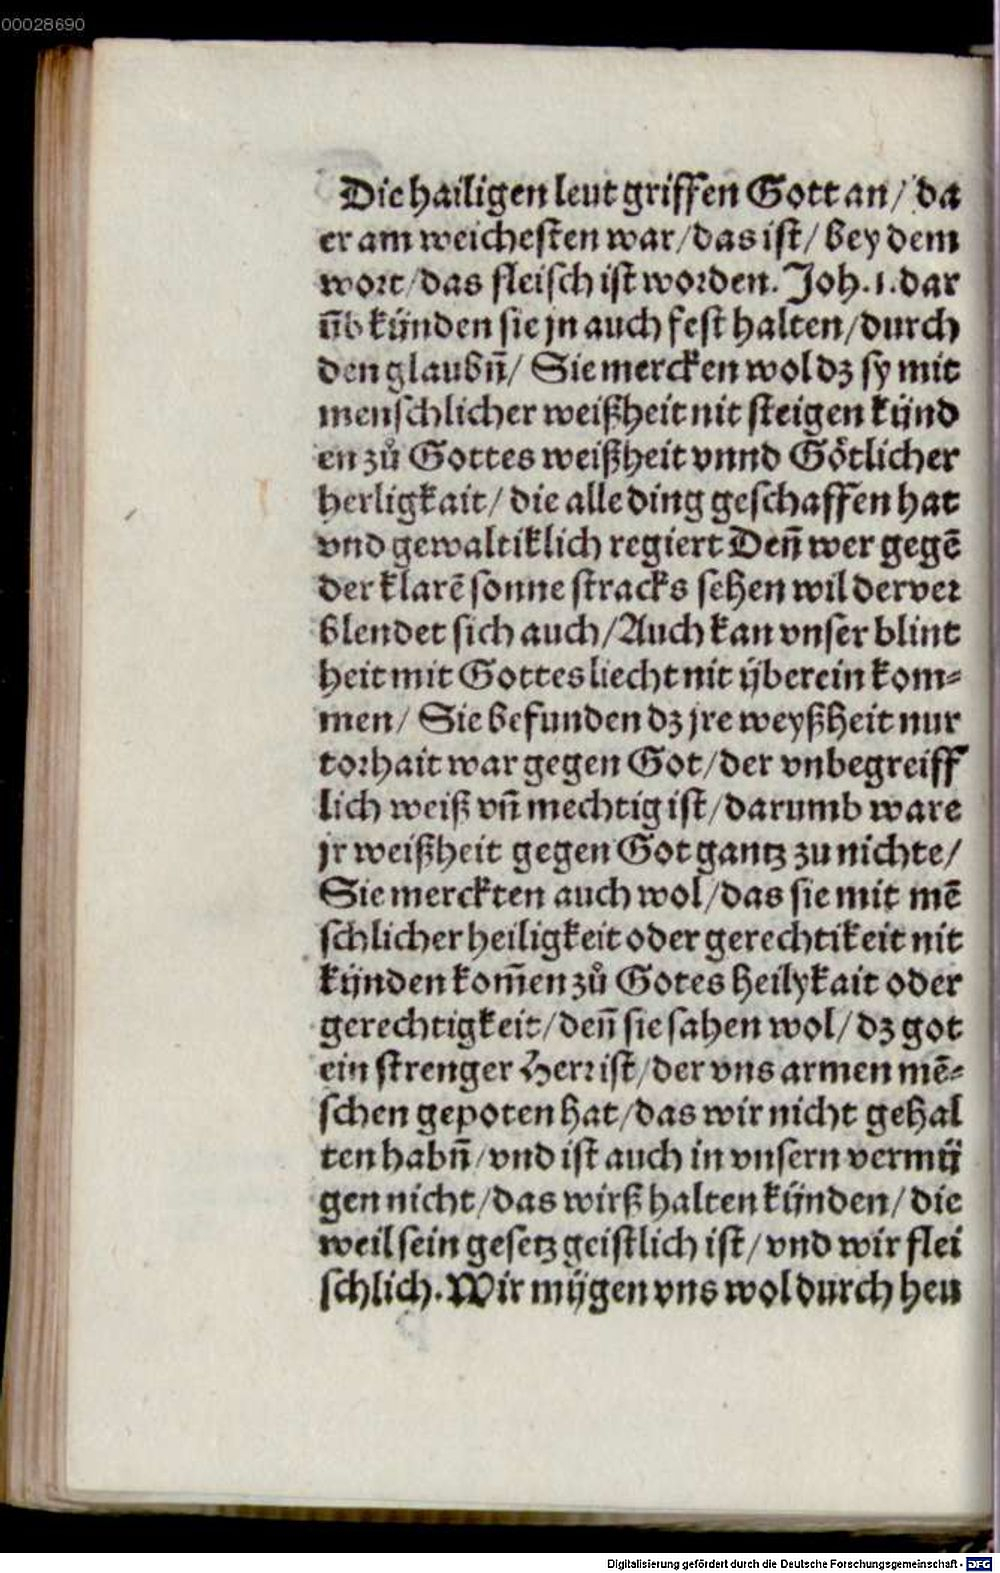 00028690
Die hailigen leut griffen Gott an/ da
er am weichesten war/das ist/ bey dem
wort/das fleisch ist worden. Joh.1.dar
um̄b künden sie jn auch fest halten/durch
den glaubn̄/ Sie mercken wol dz sy mit
menschlicher weißheit nit steigen künd
en zů Gottes weißheit vnnd Gӧtlicher
herligkait/ die alle ding geschaffen hat
vnd gewaltiklich regiert Den̄ wer gegē
der klarē sonne stracks sehen wil der ver
blendet sich auch/Auch kan vnser blint
heit mit Gottes liecht nit überein kom⸗
men/ Sie befunden dz jre weyßheit nur
torhait war gegen Got/der vnbegreiff
lich weiß vn̄ mechtig ist/darumb ware
jr weißheit gegen Got gantz zu nichte/
Sie merckten auch wol/das sie mit mē
schlicher heiligkeit oder gerechtikeit nit
künden kom̄en zů Gotes heilykait oder
gerechtigkeit/den̄ sie sahen wol/dz got
ein strenger Herr ist/der vns armen mē⸗
schen gepoten hat/das wir nicht gehal
ten habn̄/vnd ist auch in vnsern vermü
gen nicht/das wirß halten künden/ die
weil sein gesetz geistlich ist/vnd wir flei
schlich. Wir mügen vns wol durch heu
Digitalisierung gefördert durch die Deutsche Forschungsgemeinschaft - DFG